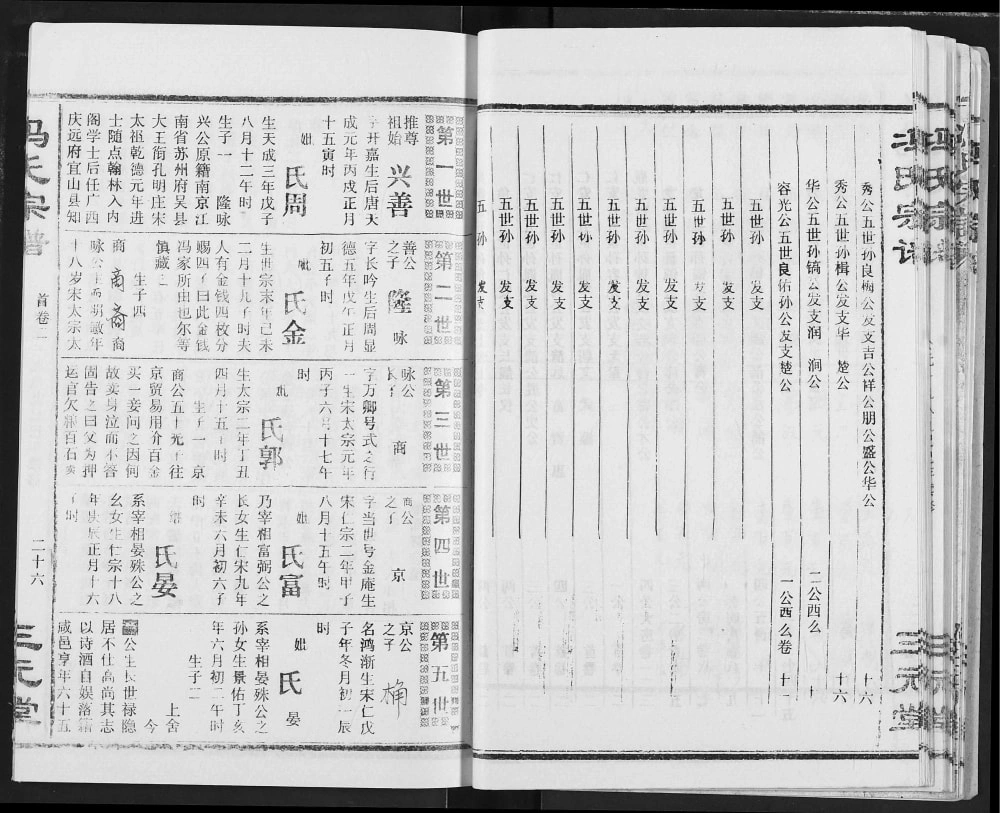 冯氏宗谱
三元堂
秀公五世孙良梅公发支吉公祥公朋公盛公华公
十六
秀公五世孙楫公发支华 楚公
十六
华公五世孙镐公发支润 涧公
二公西么
十
容光公五世良佑孙公发支楚公
一公西么卷
十一
五世孙 发支
五世孙 发支
五世孙 发支
五世孙 发支
五世孙 发支
五世孙 发支
五世孙 发支
五世孙 发支
五世孙 发支
五世孙 发支
五 孙 发支
第一世
推尊
祖始
兴善
字开嘉生后唐天
成元年丙戌正月
十五寅时
妣
氏周
生天成三年戊子
八月十二午时
生子一 隆咏
兴公原籍南京江
南省苏州府吴县
大王衙孔明庄宋
太祖乾德元年进
士随点翰林入内
阁学士后任广西
庆远府宜山县知
第二世
善公
之子
隆
咏
字长吟生后周显
德五年戊午正月
初五子时
妣
氏金
生世宗末年己未
二月十九子时夫
人有金钱四枚分
赐四子曰此金钱
冯家所由也尔等
慎藏之
生子四
商 商 裔 裔
咏公生而明敏年
十八岁宋太宗太
第三世
咏公
长子
商
字万卿号式之行
一生宋太宗元年
丙子六月十七午
时
妣
氏郭
生太宗二年丁丑
四月十五丁时
生子一 京
商公五十无子往
京贸易用价百金
买一妾问之因何
故卖身泣而不答
固告之曰父为押
运官欠粮百石卖
第四世
商公
之子
京
字当世号金庵生
宋仁宗二年甲子
八月十五午时
妣
氏富
乃宰相富弼公之
长女生仁宋九年
辛未六月初六子
时
氏晏
系宰相晏殊公之
幺女生仁宗十八
年庚辰正月十六
子时
第五世
京公
之子
桷
名鸿渐生宋仁戊
子年冬月初一辰
时
妣
氏
晏
系宰相晏殊公之
孙女生景佑丁亥
年六月初二午时
生子二
上舍
今
公生长世禄隐
居不仕高尚其志
以诗酒自娱落籍
咸邑享年六十五
冯氏宗谱
首卷一
二十六
三元堂